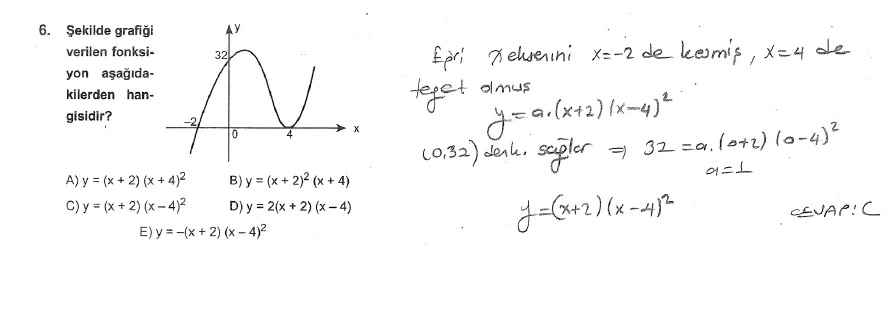 6. Şekilde grafiği
verilen fonksi-
yon aşağıda-
kilerden han-
gisidir?
y
32
-2
0
4
x
A) y = (x + 2) (x + 4)²
B) y = (x + 2)² (x + 4)
C) y = (x + 2) (x – 4)²
D) y = 2(x + 2) (x – 4)
E) y = –(x + 2) (x – 4)²
Eğri x eksenini x=-2 de kesmiş, x=4 de
teğet olmuş
y=a.(x+2)(x-4)²
(0,32) denk. sağlar ⇒ 32=a.(0+2)(0-4)²
a=1
y=(x+2)(x-4)²
CEVAP: C